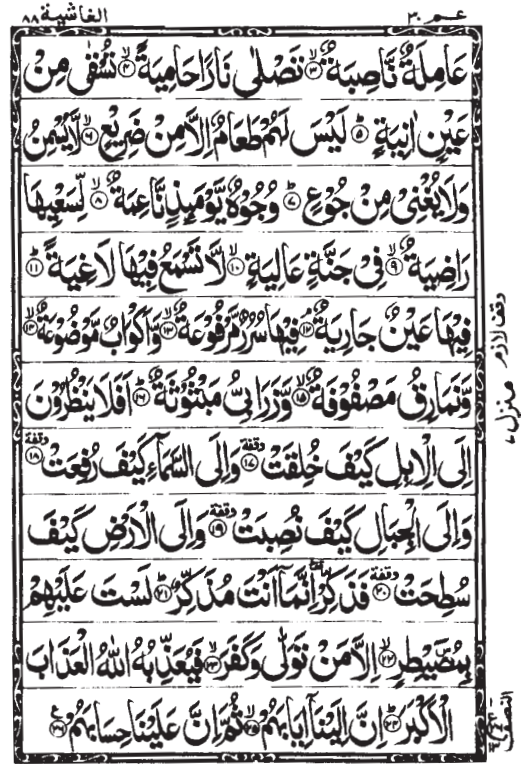 عـم ٣٠ الغاشية ٨٨
عَامِلَةٌ نَّاصِبَةٌ ۙ﴿۳﴾ تَصْلٰى نَارًا حَامِيَةً ۙ﴿۴﴾ تُسْقٰى مِنْ
عَيْنٍ اٰنِيَةٍ ؕ﴿۵﴾ لَيْسَ لَهُمْ طَعَامٌ اِلَّا مِنْ ضَرِيْعٍ ۙ﴿۶﴾ لَّا يُسْمِنُ
وَلَا يُغْنِىْ مِنْ جُوْعٍ ؕ﴿۷﴾ وُجُوْهٌ يَّوْمَئِذٍ نَّاعِمَةٌ ۙ﴿۸﴾ لِّسَعْيِهَا
رَاضِيَةٌ ۙ﴿۹﴾ فِىْ جَنَّةٍ عَالِيَةٍ ۙ﴿۱۰﴾ لَّا تَسْمَعُ فِيْهَا لَاغِيَةً ؕ﴿۱۱﴾
فِيْهَا عَيْنٌ جَارِيَةٌ ۘ﴿۱۲﴾ فِيْهَا سُرُرٌ مَّرْفُوْعَةٌ ۙ﴿۱۳﴾ وَّاَكْوَابٌ مَّوْضُوْعَةٌ ۙ﴿۱۴﴾
وَّنَمَارِقُ مَصْفُوْفَةٌ ۙ﴿۱۵﴾ وَّزَرَابِىُّ مَبْثُوْثَةٌ ؕ﴿۱۶﴾ اَفَلَا يَنْظُرُوْنَ
اِلَى الْاِبِلِ كَيْفَ خُلِقَتْ وقفة﴿۱۷﴾ وَاِلَى السَّمَآءِ كَيْفَ رُفِعَتْ وقفة﴿۱۸﴾
وَاِلَى الْجِبَالِ كَيْفَ نُصِبَتْ وقفة﴿۱۹﴾ وَاِلَى الْاَرْضِ كَيْفَ
سُطِحَتْ وقفة﴿۲۰﴾ فَذَكِّرْ اِنَّمَاۤ اَنْتَ مُذَكِّرٌ ؕ﴿۲۱﴾ لَسْتَ عَلَيْهِمْ
بِمُصَۜيْطِرٍ ۙ﴿۲۲﴾ اِلَّا مَنْ تَوَلّٰى وَكَفَرَ ۙ﴿۲۳﴾ فَيُعَذِّبُهُ اللّٰهُ الْعَذَابَ
الْاَكْبَرَ ؕ﴿۲۴﴾ اِنَّ اِلَيْنَاۤ اِيَابَهُمْ ۙ﴿۲۵﴾ ثُمَّ اِنَّ عَلَيْنَا حِسَابَهُمْ ﴿۲۶﴾
وقف لازم
منزل ٧
النصف